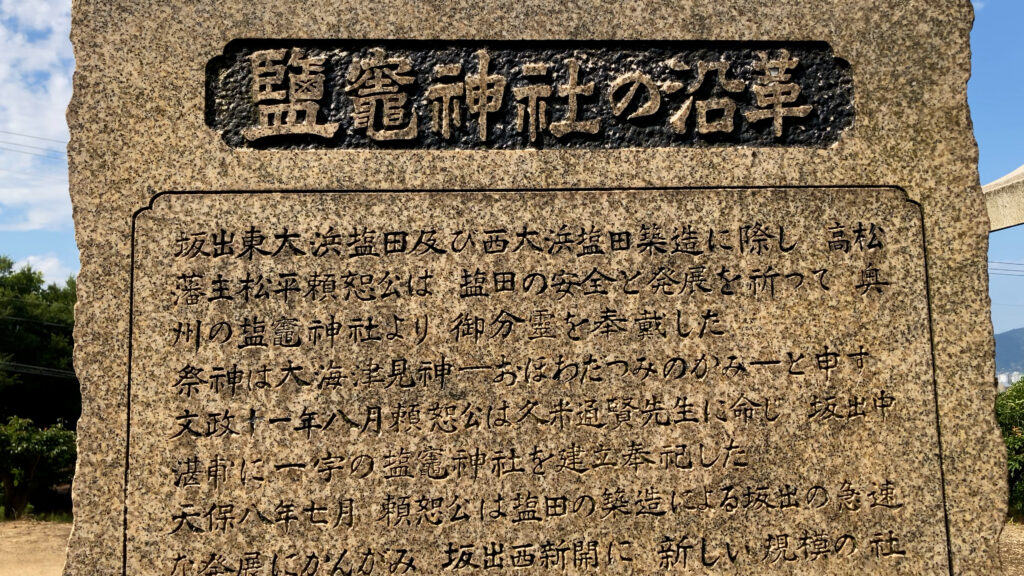 鹽竈神社の沿革
坂出東大浜塩田及び西大浜塩田築造に際し 高松
藩主松平頼恕公は 塩田の安全と発展を祈つて 奥
州の塩竈神社より 御分霊を奉戴した
祭神は大海津見神―おほわたつみのかみ―と申す
文政十一年八月頼恕公は久米通賢先生に命じ 坂出中
湛甫に 一宇の塩竈神社を建立奉祀した
天保八年七月 頼恕公は塩田の築造による坂出の急速
な発展にかんがみ 坂出西新開に 新しい規模の社